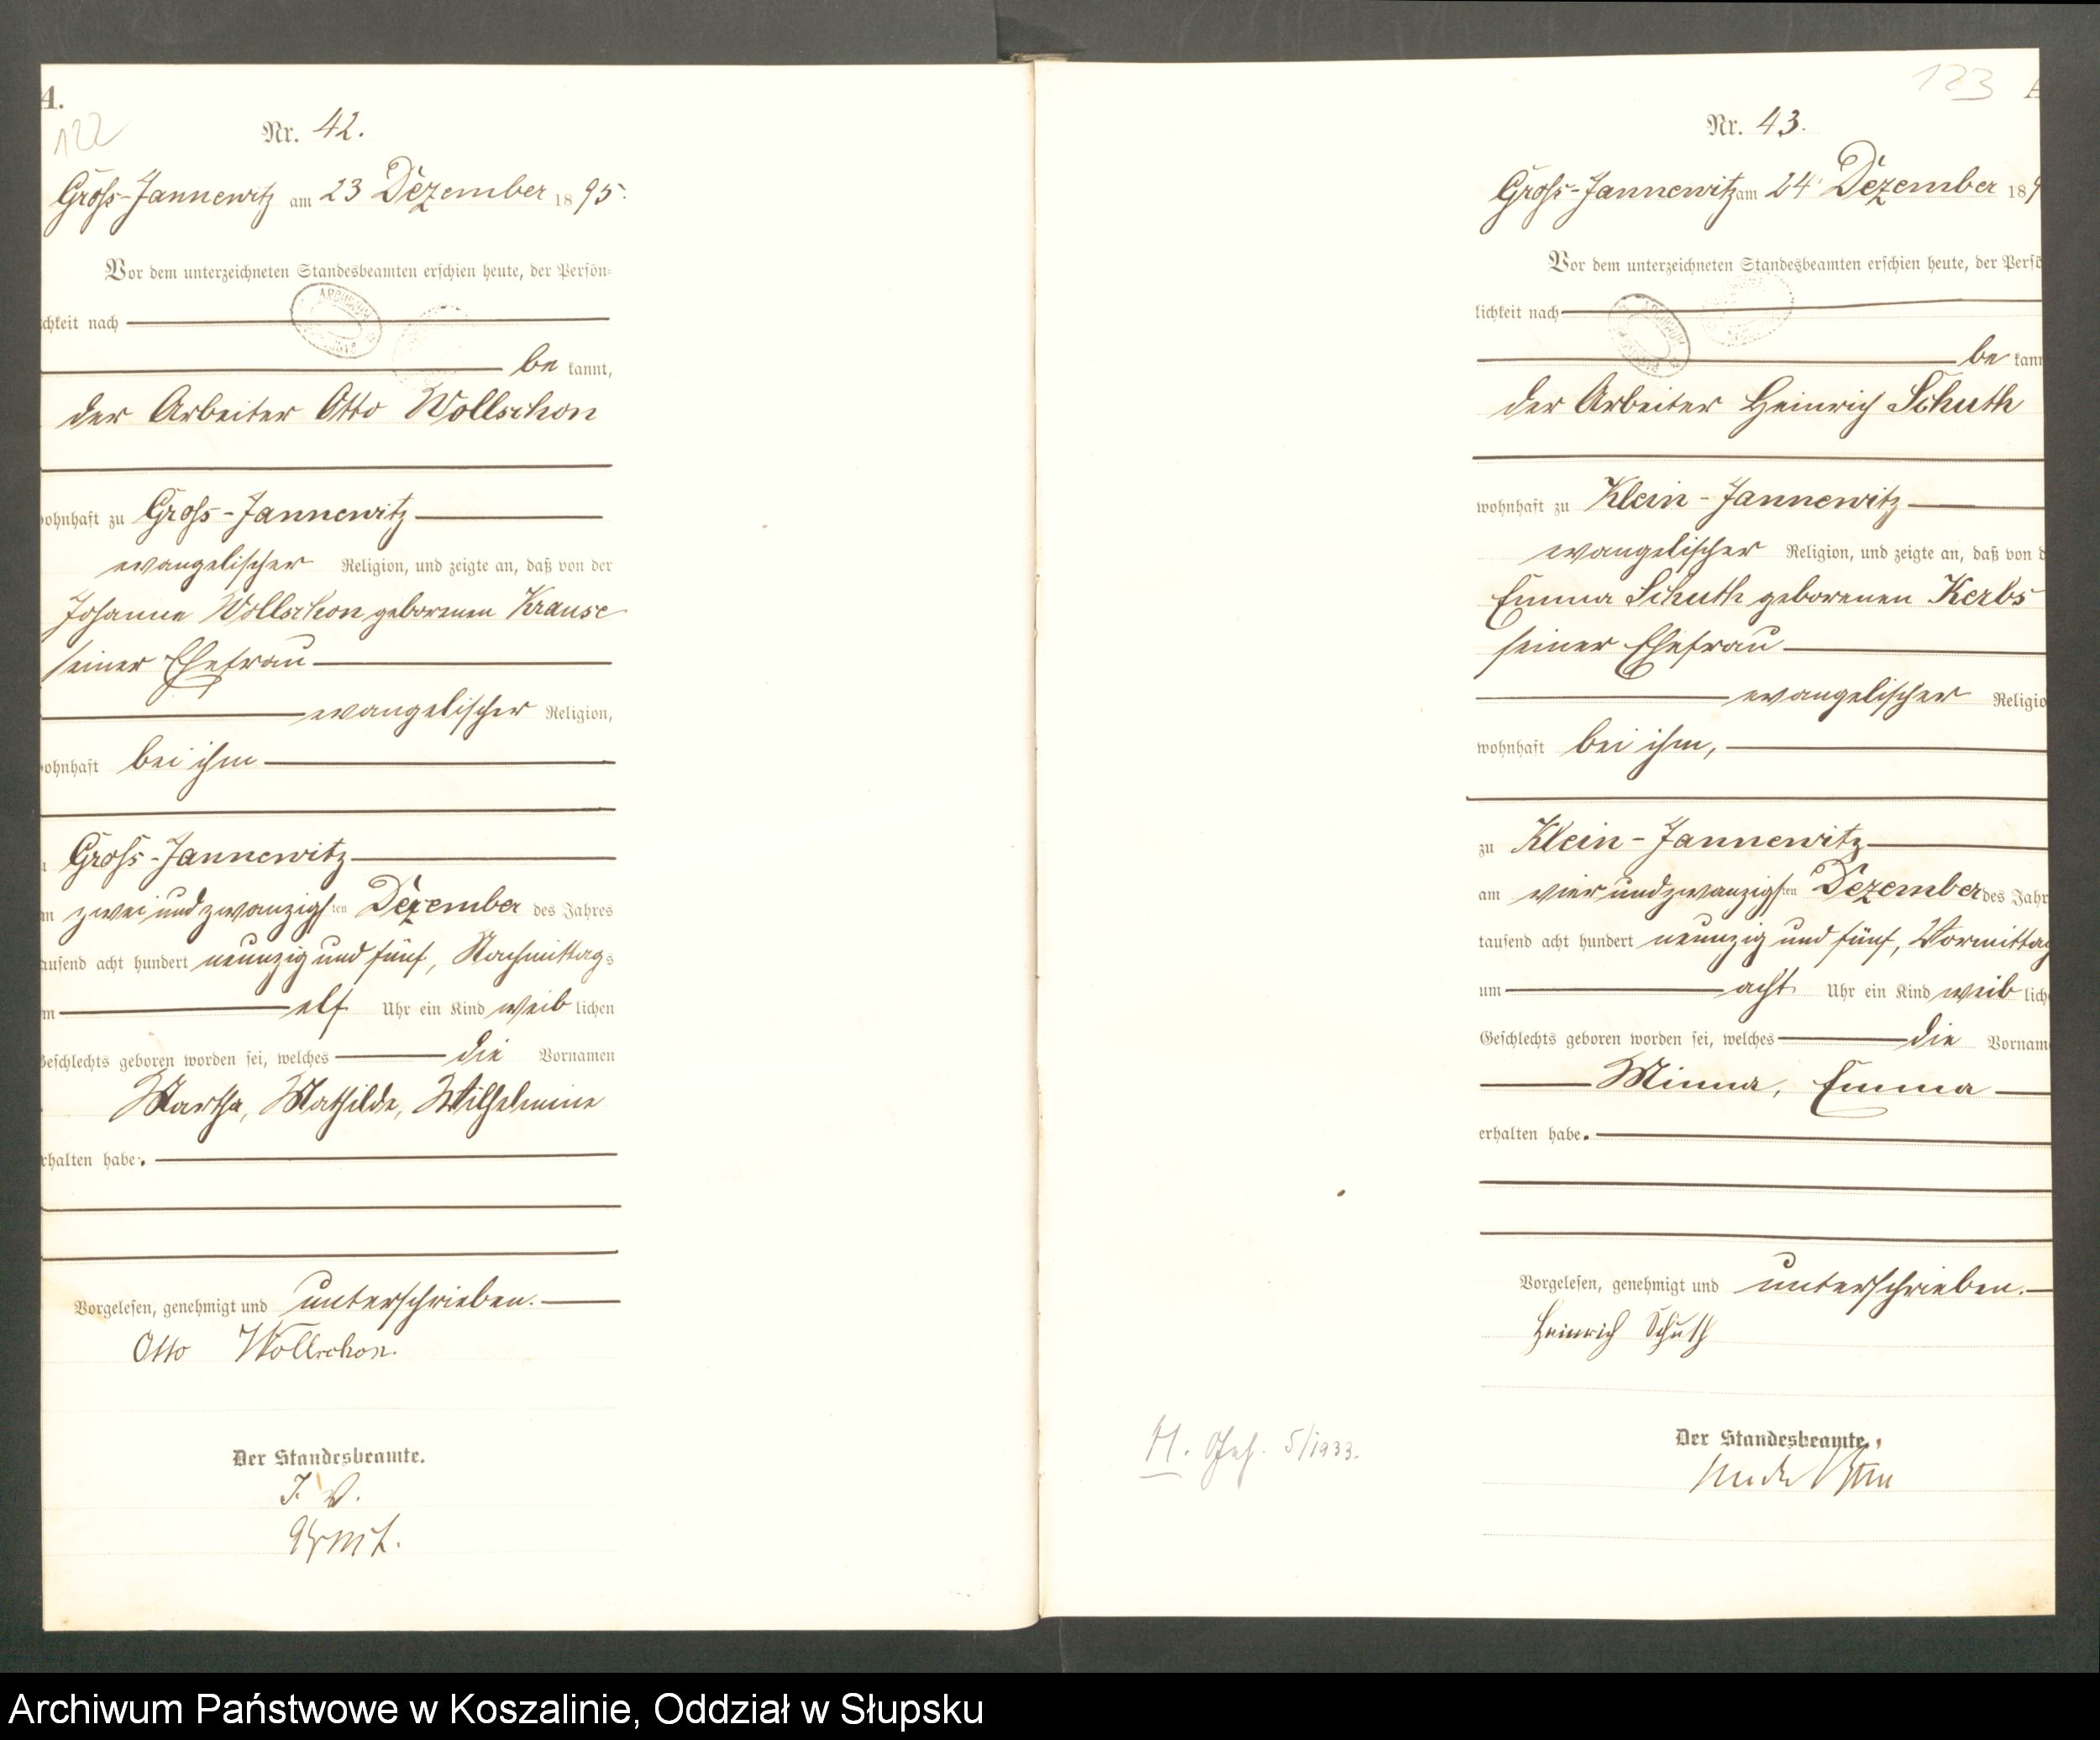 A.
122
Nr. 42.
Groß-Jannewitz am 23 Dezember 1895.
Vor dem unterzeichneten Standesbeamten erschien heute, der Persön=
chkeit nach
be kannt,
der Arbeiter Otto Wollschon
ohnhaft zu Groß-Jannewitz
evangelischer Religion, und zeigte an, daß von der
Johanne Wollschon geborenen Krause
seiner Ehefrau
evangelischer Religion,
ohnhaft bei ihm
Groß-Jannewitz
zwei und zwanzigsten Dezember des Jahres
ausend acht hundert neunzig und fünf, Nachmittags
m elf Uhr ein Kind weiblichen
Geschlechts geboren worden sei, welches die Vornamen
Martha, Mathilde, Wilhelmine
rhalten habe.
Vorgelesen, genehmigt und unterschrieben.
Otto Wollschon.
Der Standesbeamte.
J. V.
123
Nr. 43.
Groß-Jannewitz am 24 Dezember 189
Vor dem unterzeichneten Standesbeamten erschien heute, der Persö
lichkeit nach
be kann
der Arbeiter Heinrich Schuth
wohnhaft zu Klein-Jannewitz
evangelischer Religion, und zeigte an, daß von d
Emma Schuth geborenen Kerbs
seiner Ehefrau
evangelischer Religio
wohnhaft bei ihm,
zu Klein-Jannewitz
am vier und zwanzigsten Dezember des Jahr
tausend acht hundert neunzig und fünf, Vormittag
um acht Uhr ein Kind weib lich
Geschlechts geboren worden sei, welches die Vornam
Minna, Emma
erhalten habe.
Vorgelesen, genehmigt und unterschrieben.
Heinrich Schuth
H. 5/1933.
Der Standesbeamte.
Archiwum Państwowe w Koszalinie, Oddział w Słupsku